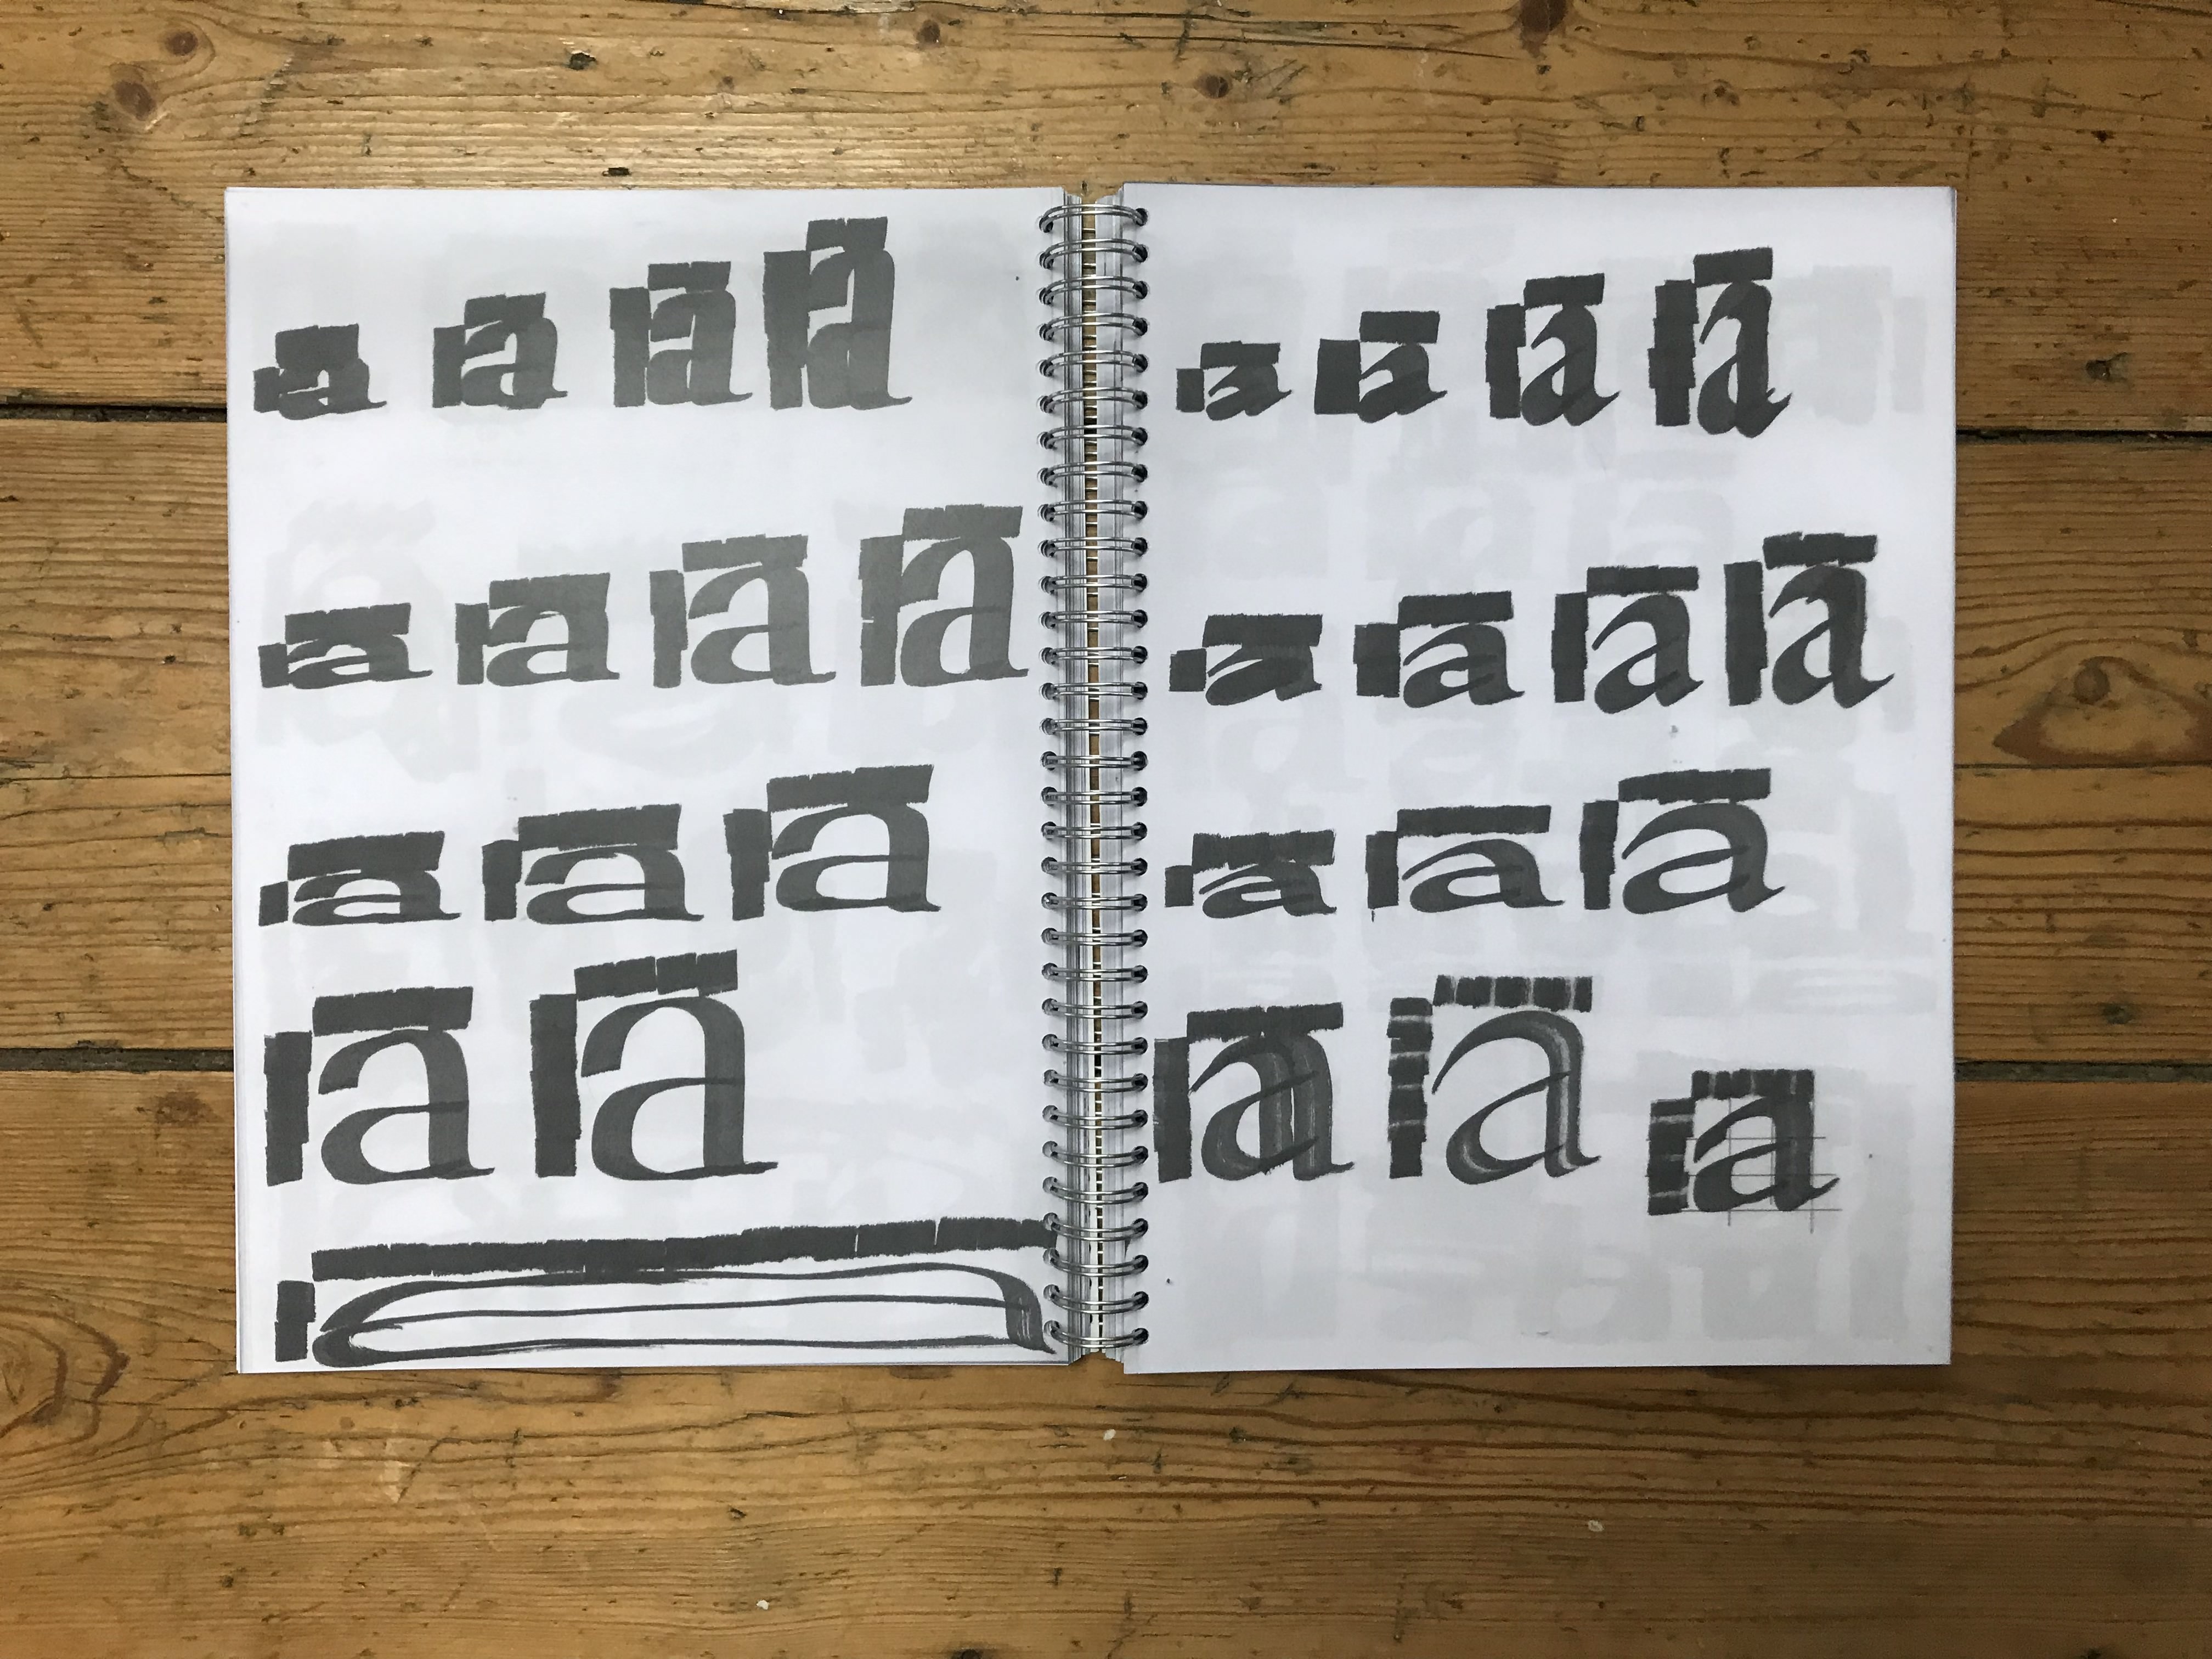 a a a a
a a a a
a a a
a a
a
a a a a
a a a a
a a a
a a a